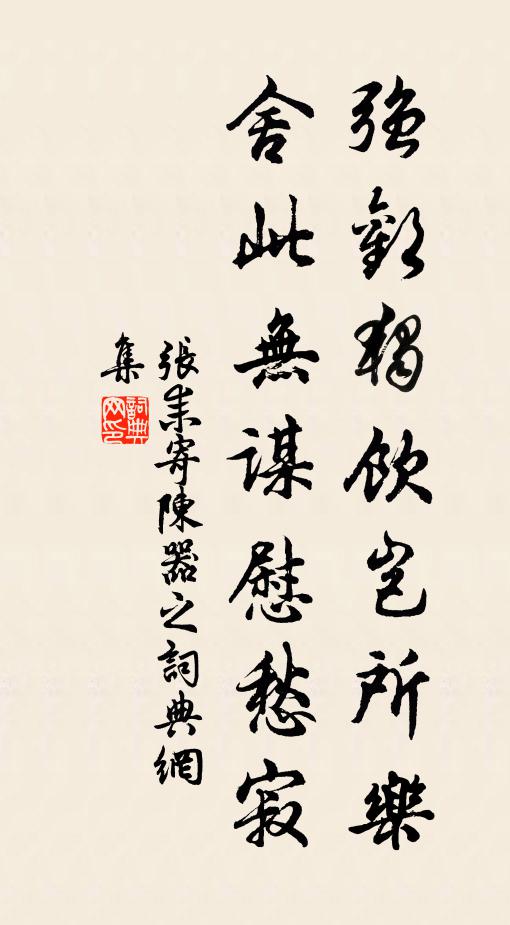 強歡獨飲豈所樂
舍此無謀慰愁寂
張耒寄陳器之詞典網
集
詞典網印